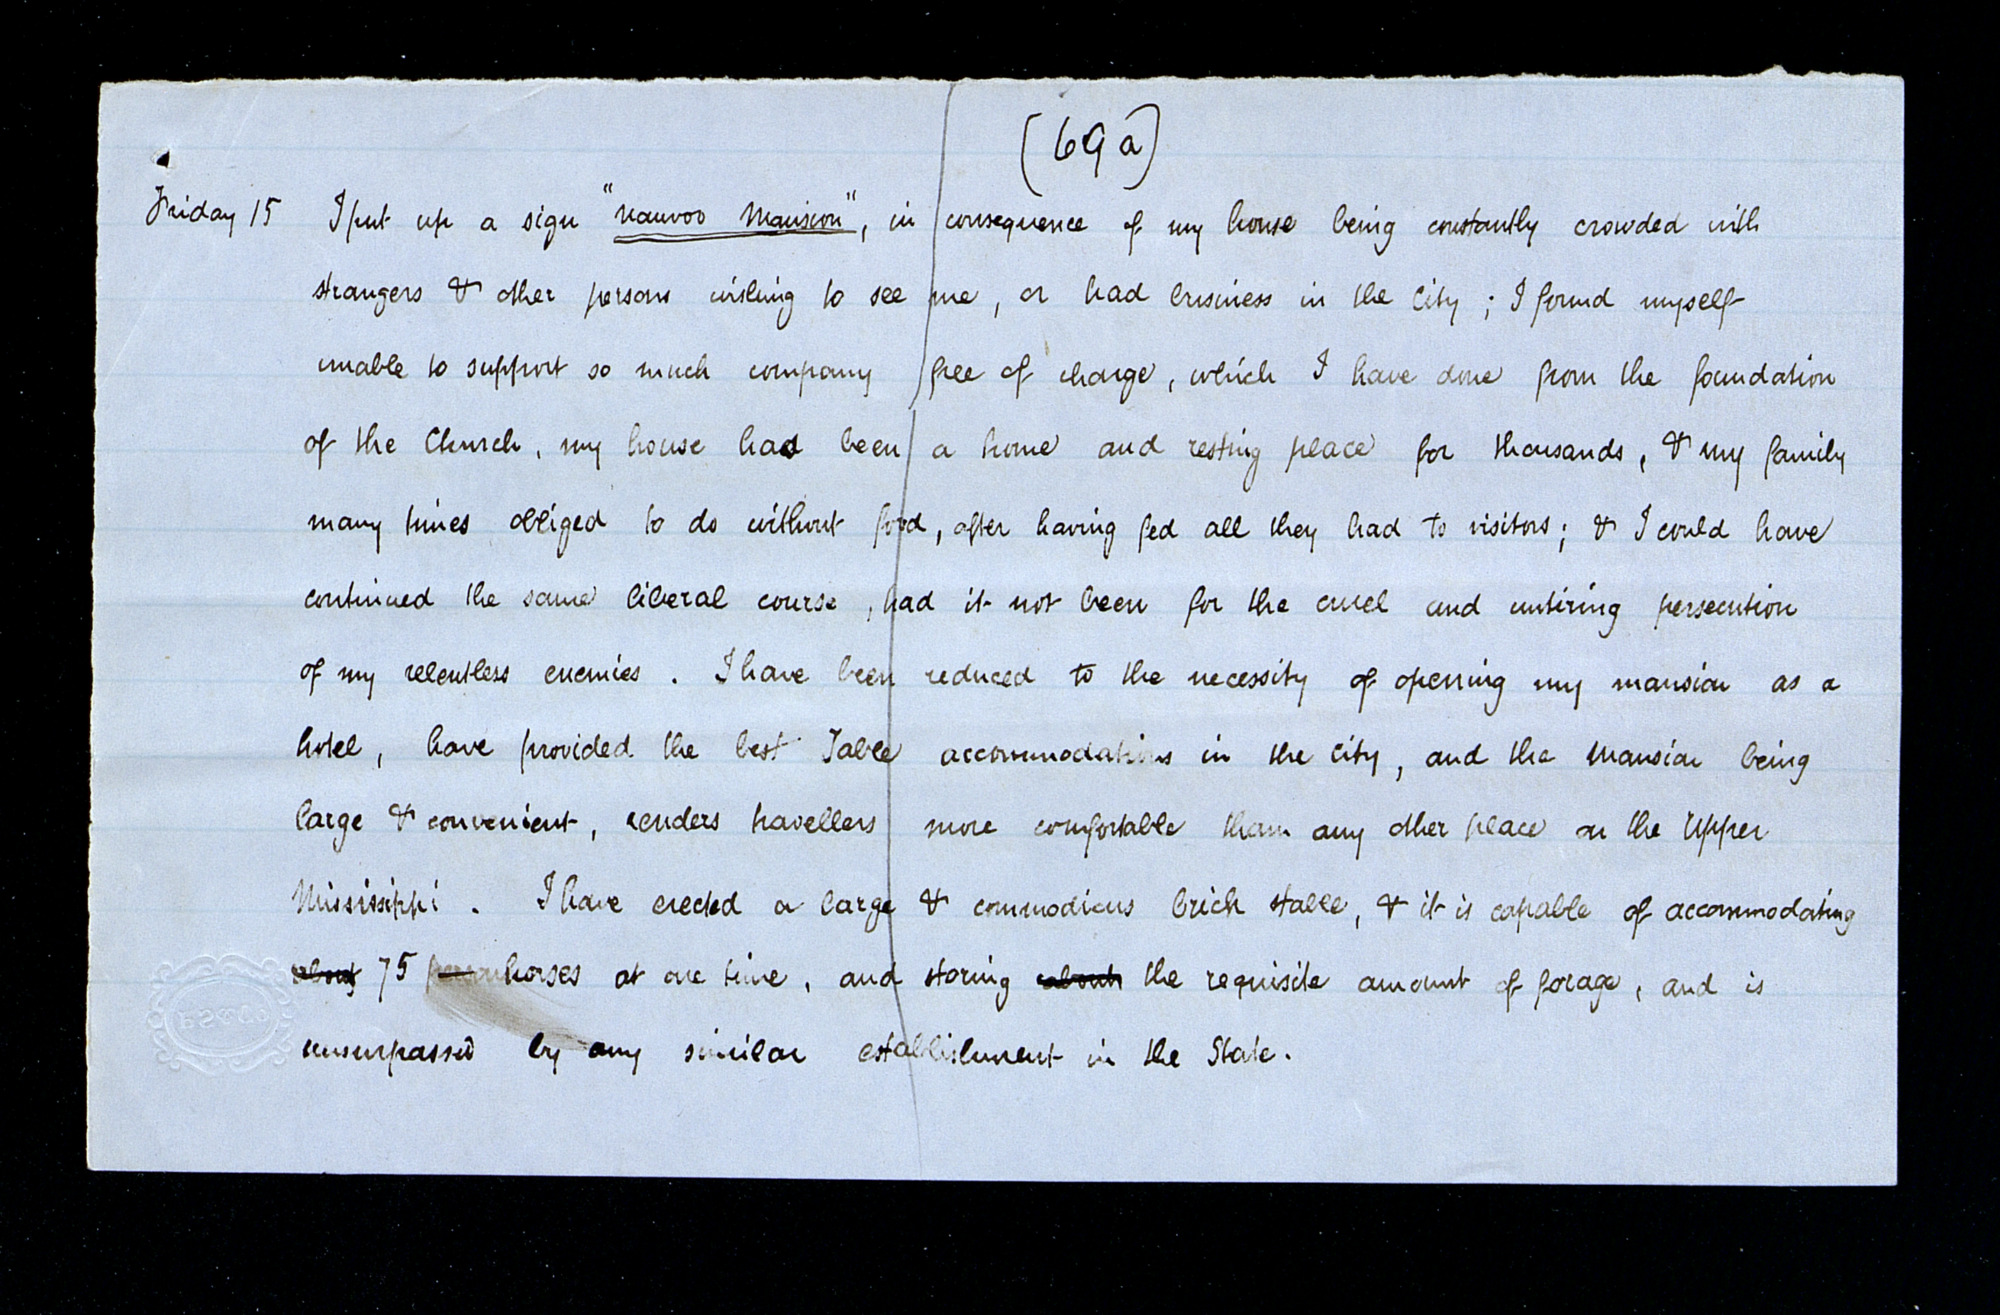 (69a)
Friday 15 I put up a sign "Nauvoo Mansion", in consequence of my house being constantly crowded with
strangers & other persons wishing to see me, or had business in the City; I found myself
unable to support so much company free of charge, which I have done from the foundation
of the Church, my house had been a home and resting place for thousands, & my family
many times obliged to do without food, after having fed all they had to visitors; & I could have
continued the same liberal course, had it not been for the cruel and untiring persecution
of my relentless enemies. I have been reduced to the necessity of opening my mansion as a
hotel, have provided the best Table accommodations in the city, and the Mansion being
large & convenient, renders travellers more comfortable than any other place on the Upper
Mississippi. I have erected a large & commodious brick stable, & it is capable of accommodating
about 75 person horses at one time, and storing about the requisite amount of forage, and is
unsurpassed by any similar establishment in the State.